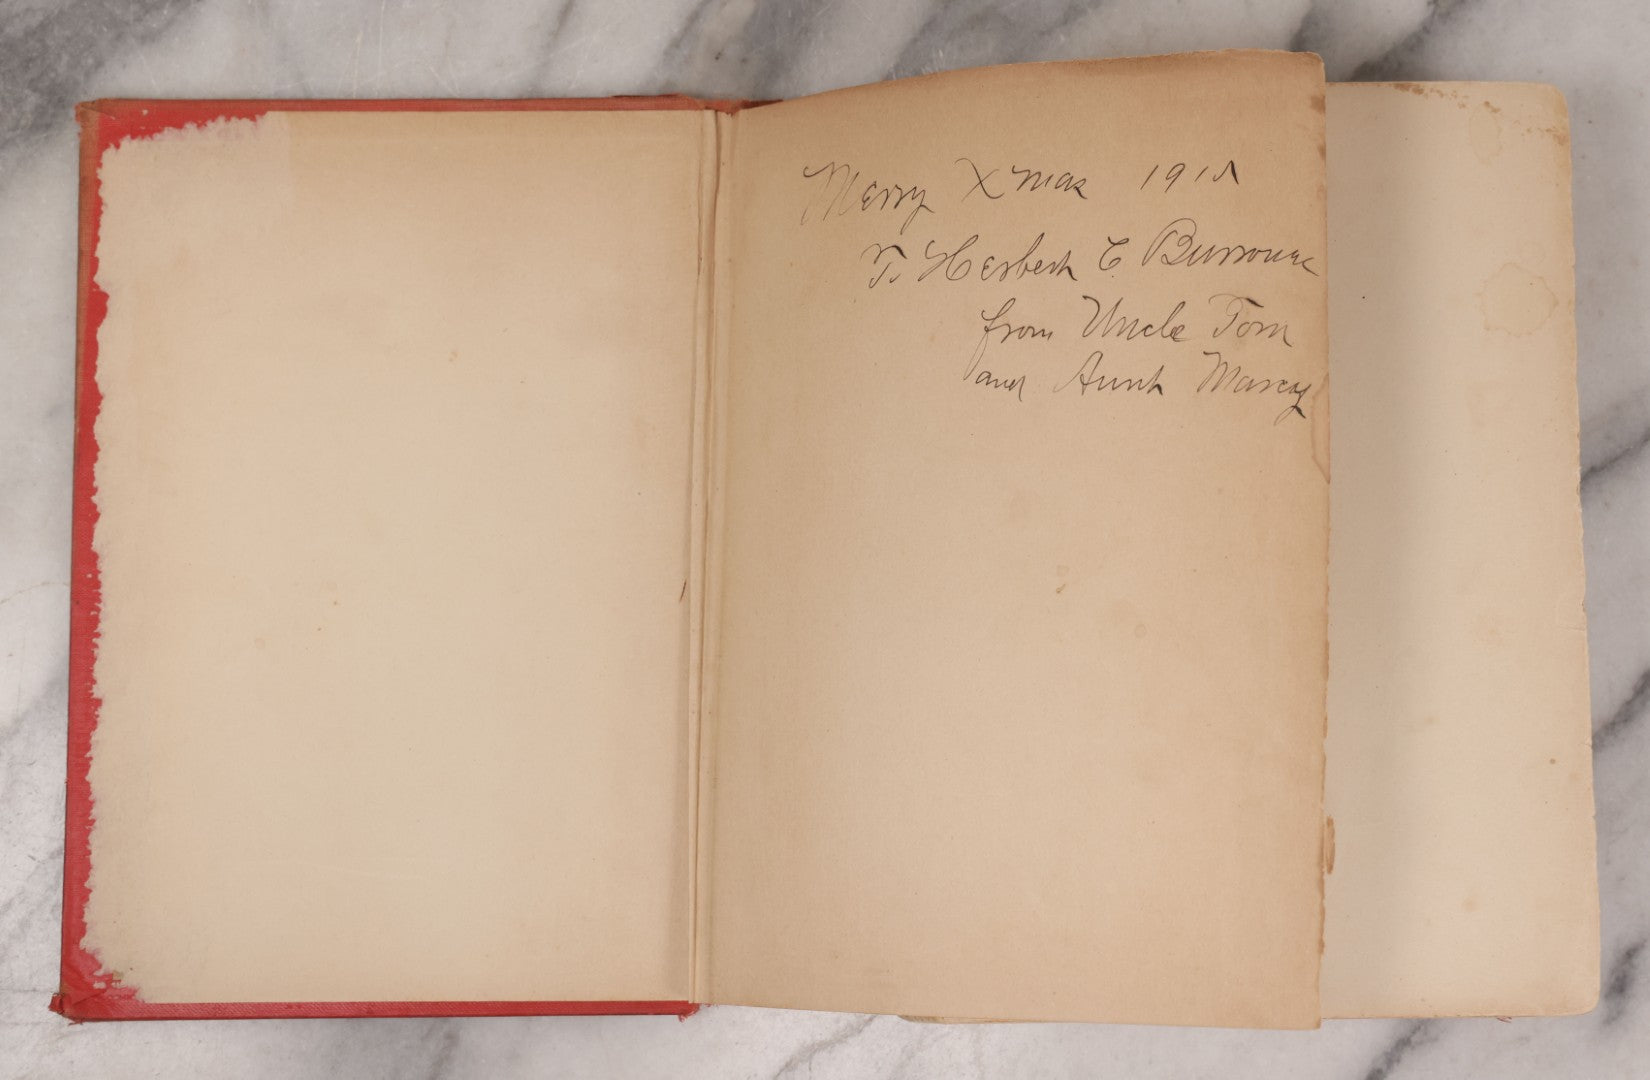 Merry Xmas 191
To Herbert C Burrows
from Uncle Tom
and Aunt Marcy